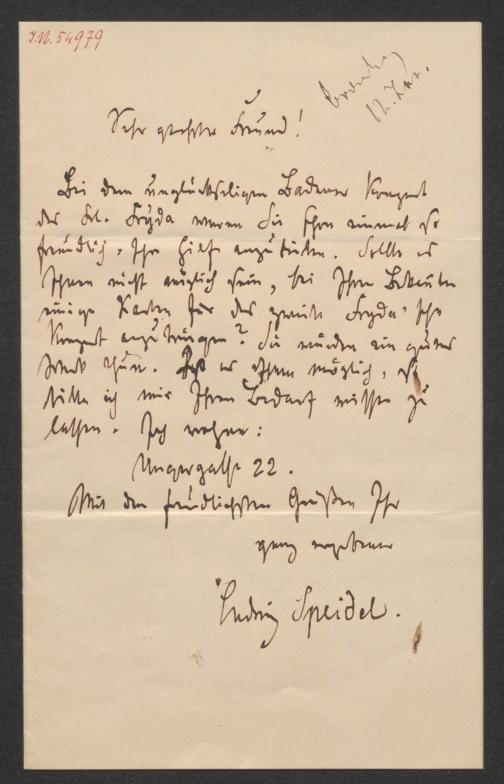 I.N. 54979
12. Jan.
Sehr geehrter Freund!
Bei dem unglückseligen Badener Konzert
der Frl. Fryda waren Sie schon einmal so
freundlich, Ihre Hilfe anzubieten. Sollte es
Ihnen nicht möglich sein, bei Ihren Bekannten
einige Karten für das zweite Fryda'sche
Konzert anzubringen? Sie würden ein gutes
Werk thun. Ist es Ihnen möglich, so
bitte ich mir Ihren Bedarf wissen zu
lassen. Ich wohne:
Ungargasse 22.
Mit den freundlichsten Grüßen Ihr
ganz ergebener
Ludwig Speidel.